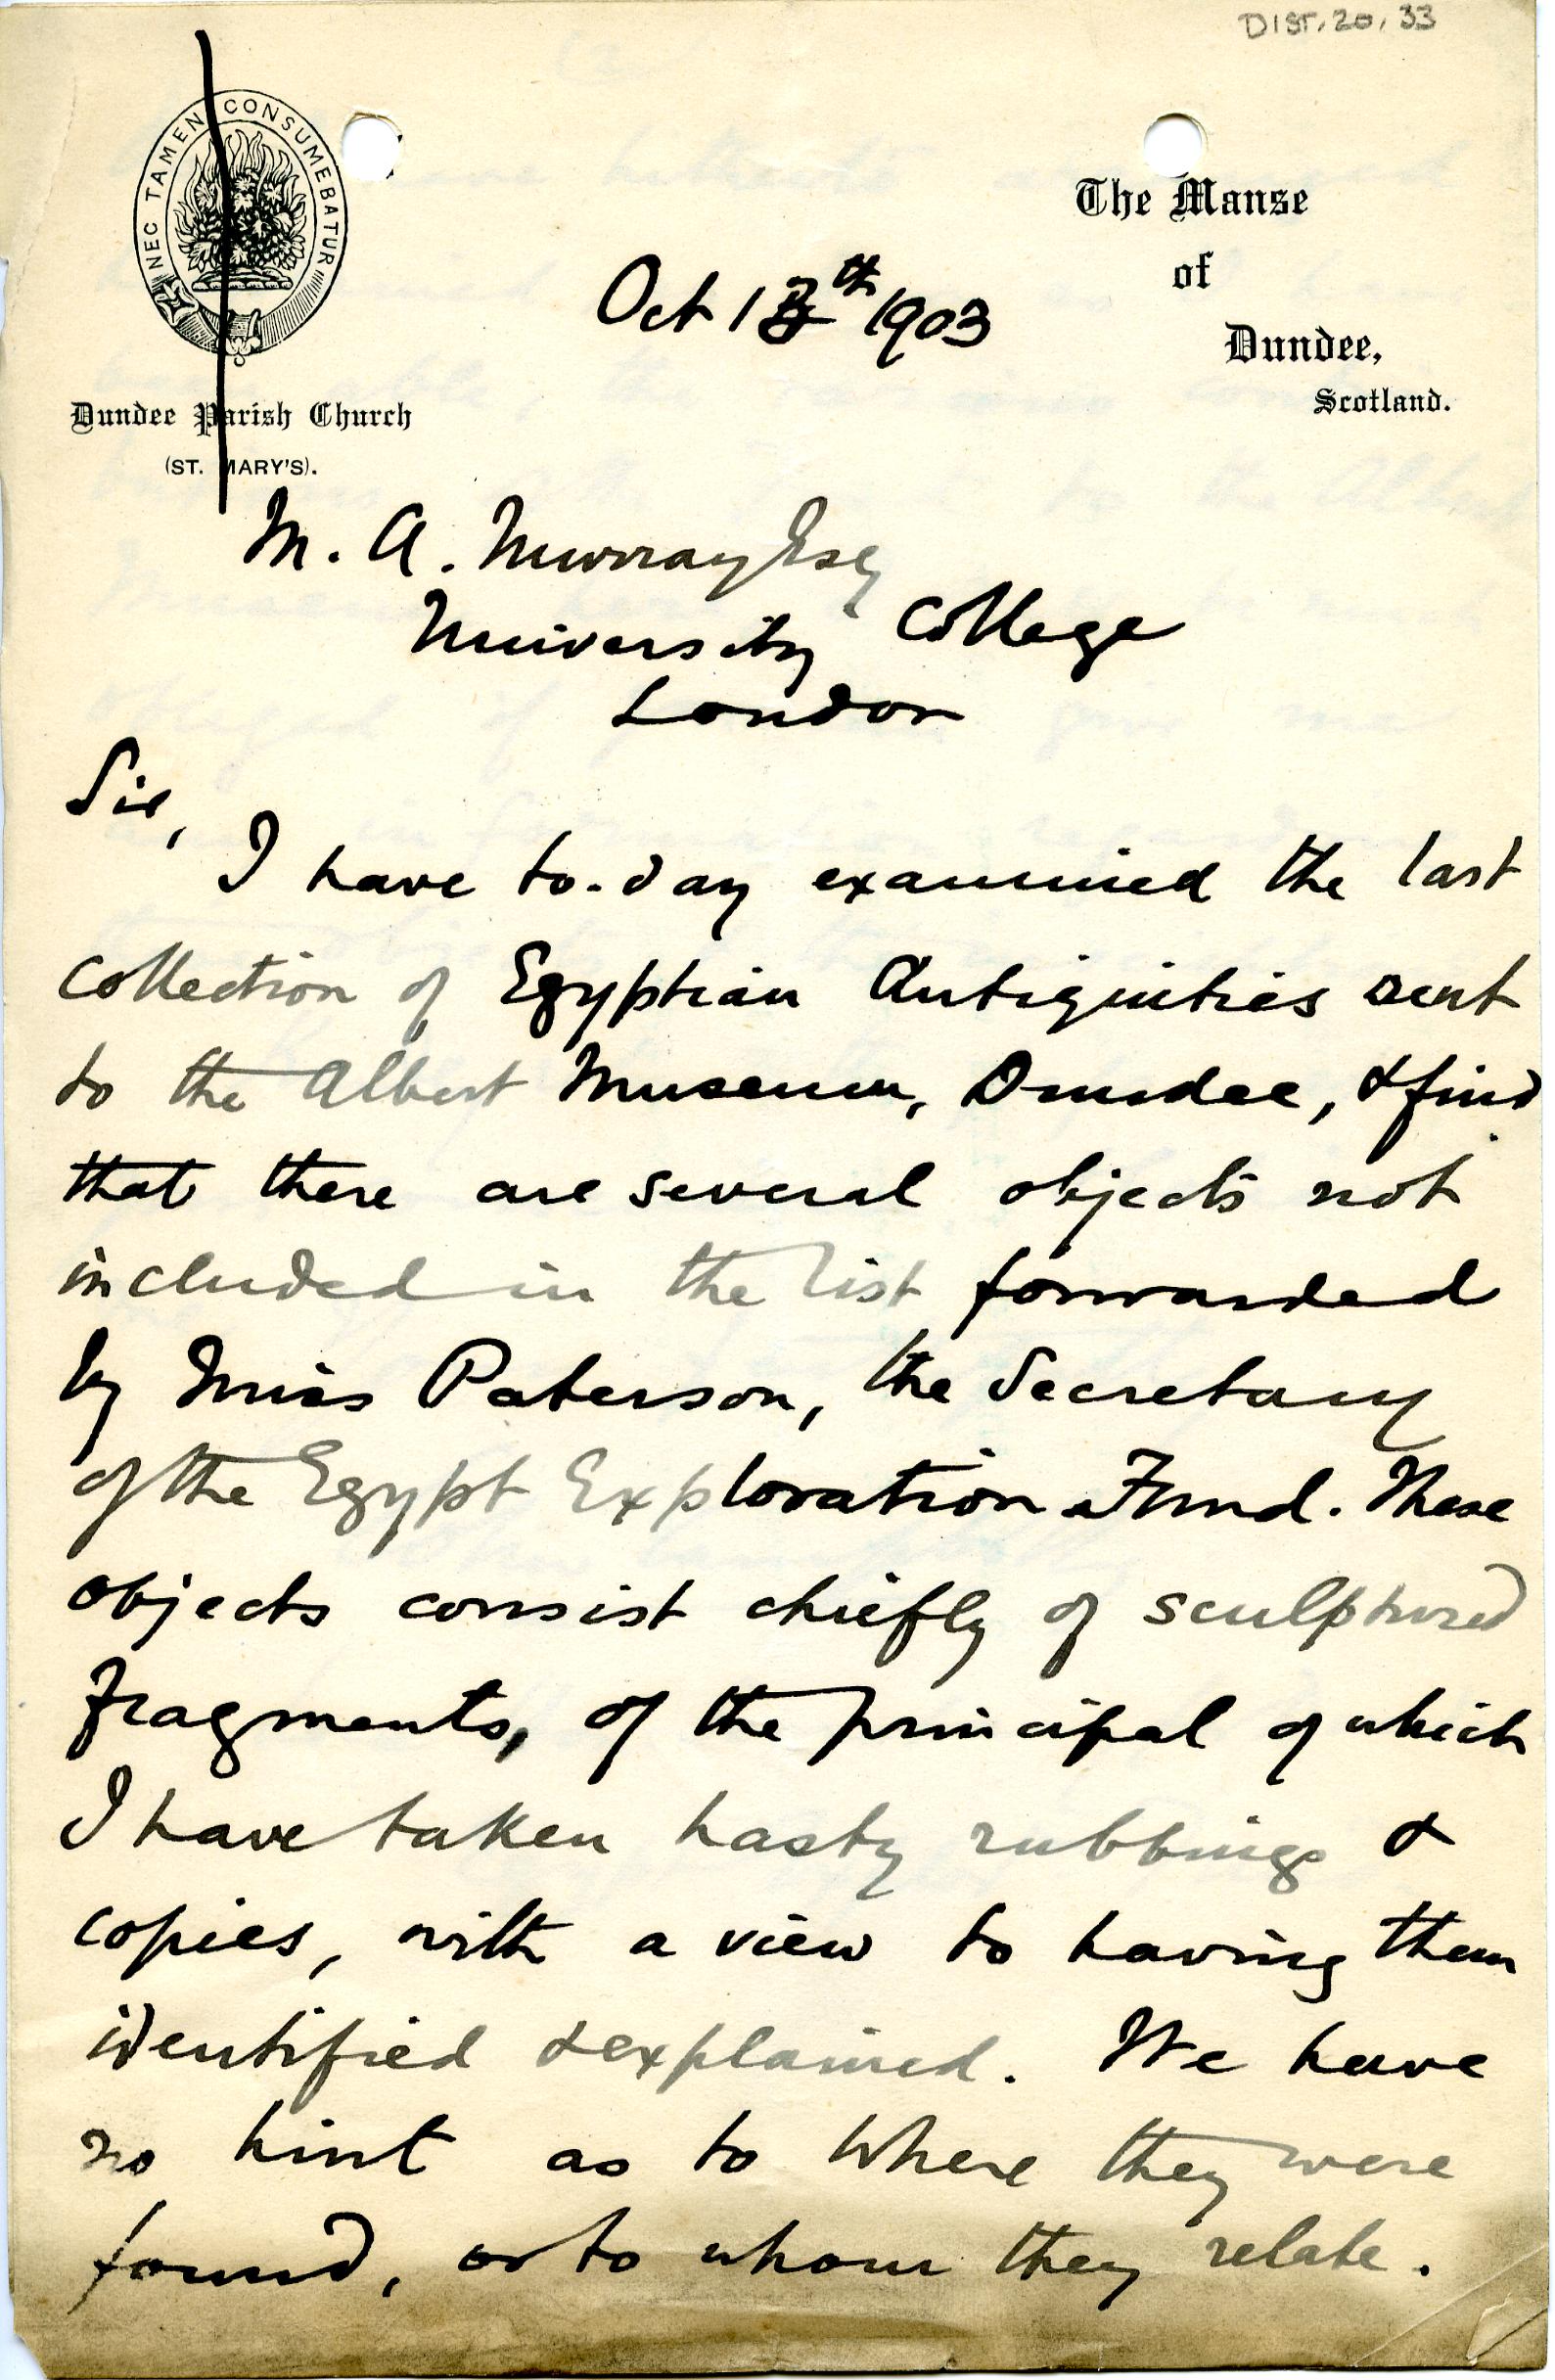 DIST. 20. 33
NEC TAMEN CONSUMEBATUR
Dundee Parish Church
(ST. MARY'S).
The Manse
of
Dundee,
Scotland.
Oct th 1903
M. A. Murray Esq
University College
London
Sir,
I have to-day examined the last
collection of Egyptian Antiquities sent
to the Albert Museum, Dundee, & find
that there are several objects not
included in the list forwarded
by Miss Paterson, the Secretary
of the Egypt Exploration Fund. These
objects consist chiefly of sculptured
fragments, of the principal of which
I have taken hasty rubbings &
copies, with a view to having them
identified & explained. We have
no hint as to where they were
found, or to whom they relate.